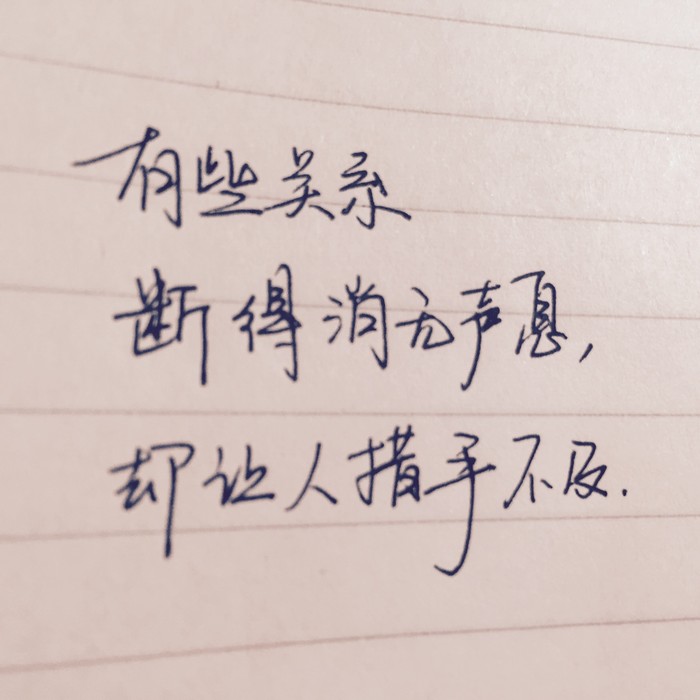 有些关系
断得消无声息，
却让人措手不及.